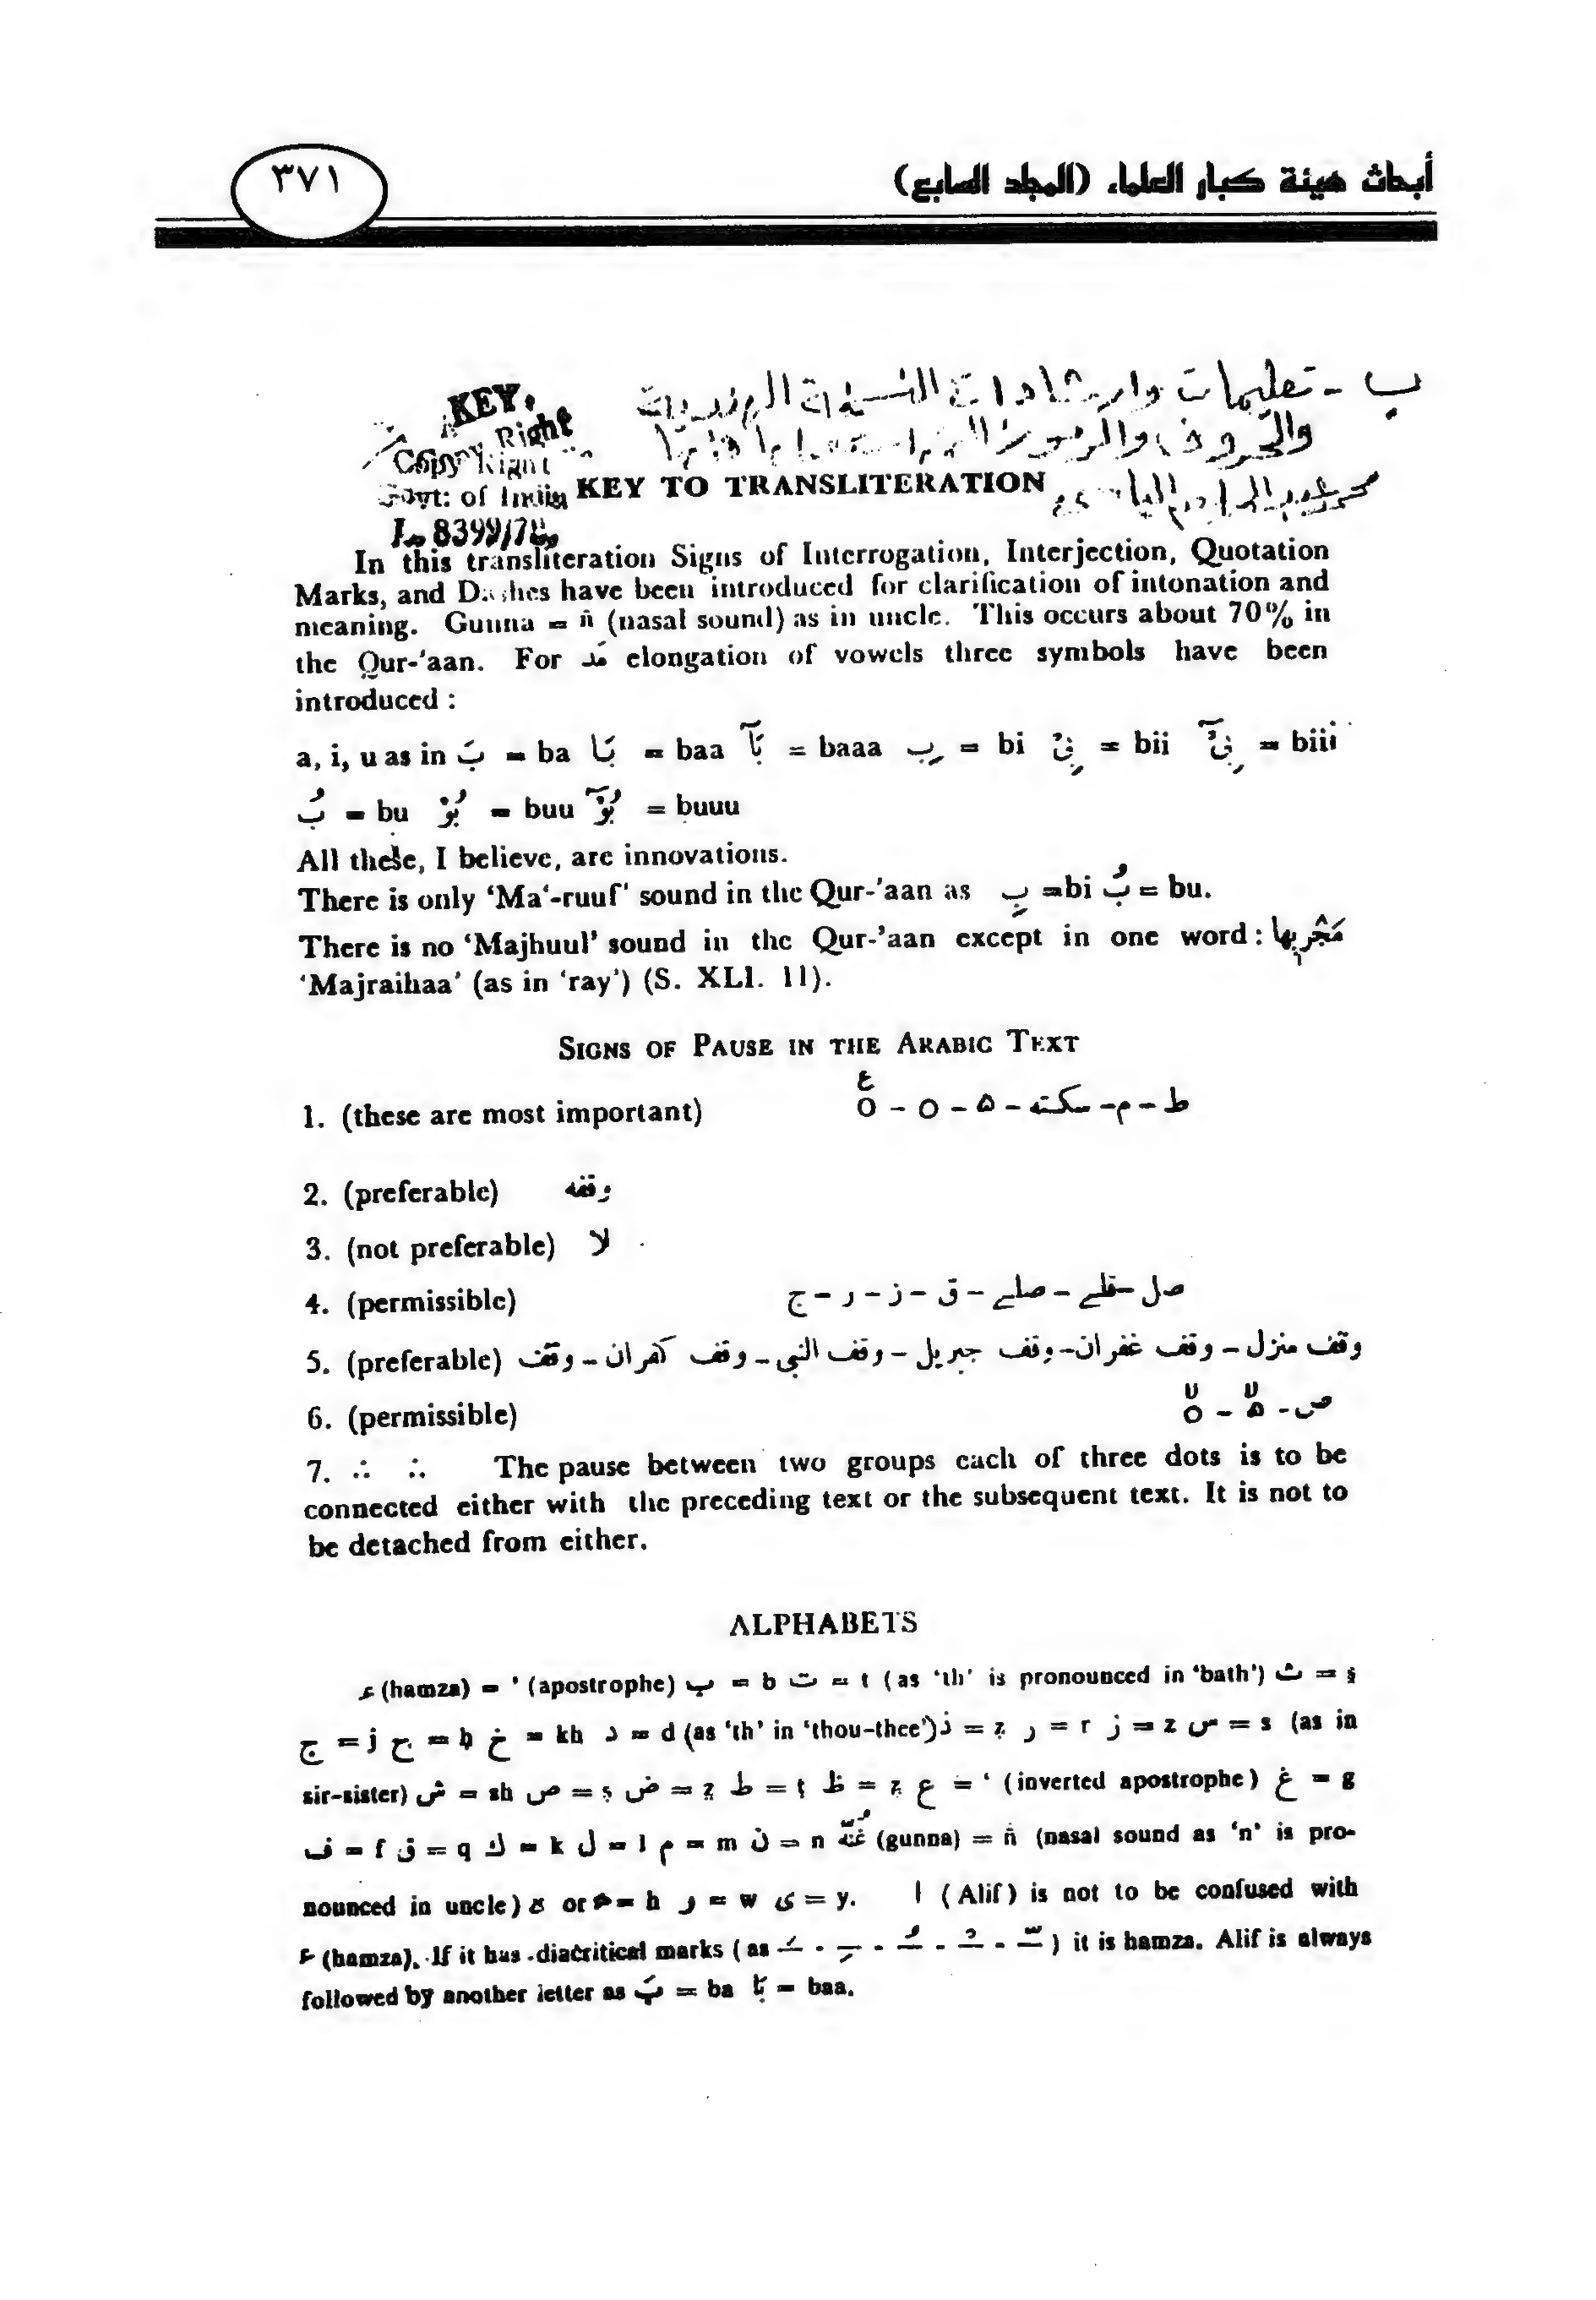 أبحاث هيئة كبار العلماء (المجلد السابع)
٣٧١
ب - تعليمات وارشادات
والحروف والرموز
KEY.
Copy Right
Copy Right
Govt: of India
8399/78
KEY TO TRANSLITERATION
In this transliteration Signs of Interrogation, Interjection, Quotation
Marks, and Dashes have been introduced for clarification of intonation and
meaning. Gunna = ñ (nasal sound) as in uncle. This occurs about 70% in
the Qur-'aan. For مَد elongation of vowels three symbols have been
introduced :
a, i, u as in بَ = ba بَا = baa بَآ = baaa بِ = bi بِىْ = bii بِىْٓ = biii
بُ = bu بُوْ = buu بُوْٓ = buuu
All these, I believe, are innovations.
There is only ‘Ma‘-ruuf' sound in the Qur-'aan as بِ =bi بُ = bu.
There is no ‘Majhuul’ sound in the Qur-’aan except in one word : مَجْرٖىهَا
‘Majraihaa’ (as in ‘ray’) (S. XLI. 11).
SIGNS OF PAUSE IN THE ARABIC TEXT
1. (these are most important) ط - م - سكته - ۵ - ○ - ○ ع
2. (preferable) وقفه
3. (not preferable) لا
4. (permissible) صل - قلے - صلے - ق - ز - ر - ج
5. (preferable) وقف منزل - وقف غفران - وقف جبريل - وقف النبى - وقف كفران - وقف
6. (permissible) ص - ۵ - ○
7. ∴ ∴ The pause between two groups each of three dots is to be
connected either with the preceding text or the subsequent text. It is not to
be detached from either.
ALPHABETS
ء (hamza) = ' (apostrophe) ب = b ت = t (as ‘th’ is pronounced in ‘bath’) ث = ṣ
ج = j ح = ḥ خ = kh د = d (as ‘th’ in ‘thou-thee’) ذ = ẓ ر = r ز = z س = s (as in
sir-sister) ش = sh ص = ṣ ض = ẓ ط = ṭ ظ = ẓ ع = ‘ (inverted apostrophe) غ = g
ف = f ق = q ك = k ل = l م = m ن = n غُنَّه (gunna) = ñ (nasal sound as ‘n’ is pro-
nounced in uncle) ه or ة = h و = w ى = y. ا (Alif) is not to be confused with
ء (hamza). If it has diacritical marks (as ـَ - ـِ - ـُ - ـْ - ـّ) it is hamza. Alif is always
followed by another letter as بَ = ba بَا = baa.